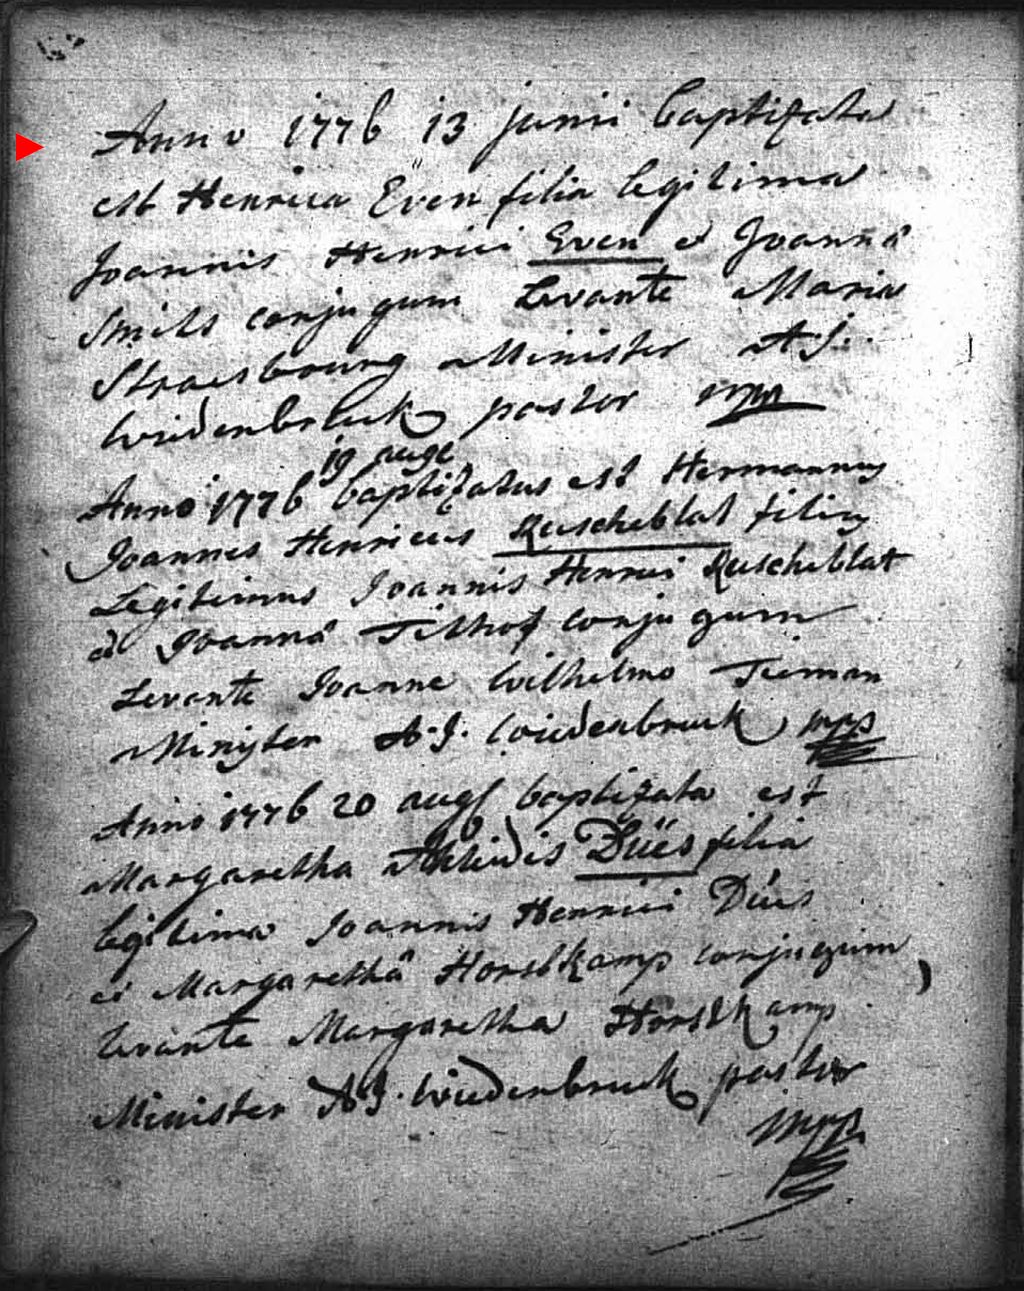 Anno 1776 13 junii baptizata
est Henrica Even filia legitima
Joannis Henrici Even et Joannâ
Smits conjugum Levante Maria
Straesbourg Minister A J.
Wiedenbruck pastor mpp
19 augt
Anno 1776 baptizatus est Hermannus
Joannes Henricus Kuscheblat filius
Legitimus Joannis Henrici Kuscheblat
et Joannâ Tilhof conjugum
Levante Joanne Wilhelmo Tieman
Minister A.J. Wiedenbruck mpp
Anno 1776 20 augt baptizata est
Margaretha Ahleidis Düës filia
legitima Joannis Henrici Düës
et Margarethâ Horstkamp conjugum
levante Margaretha Horstkamp
Minister A J. Wiedenbruck pastor
mpp